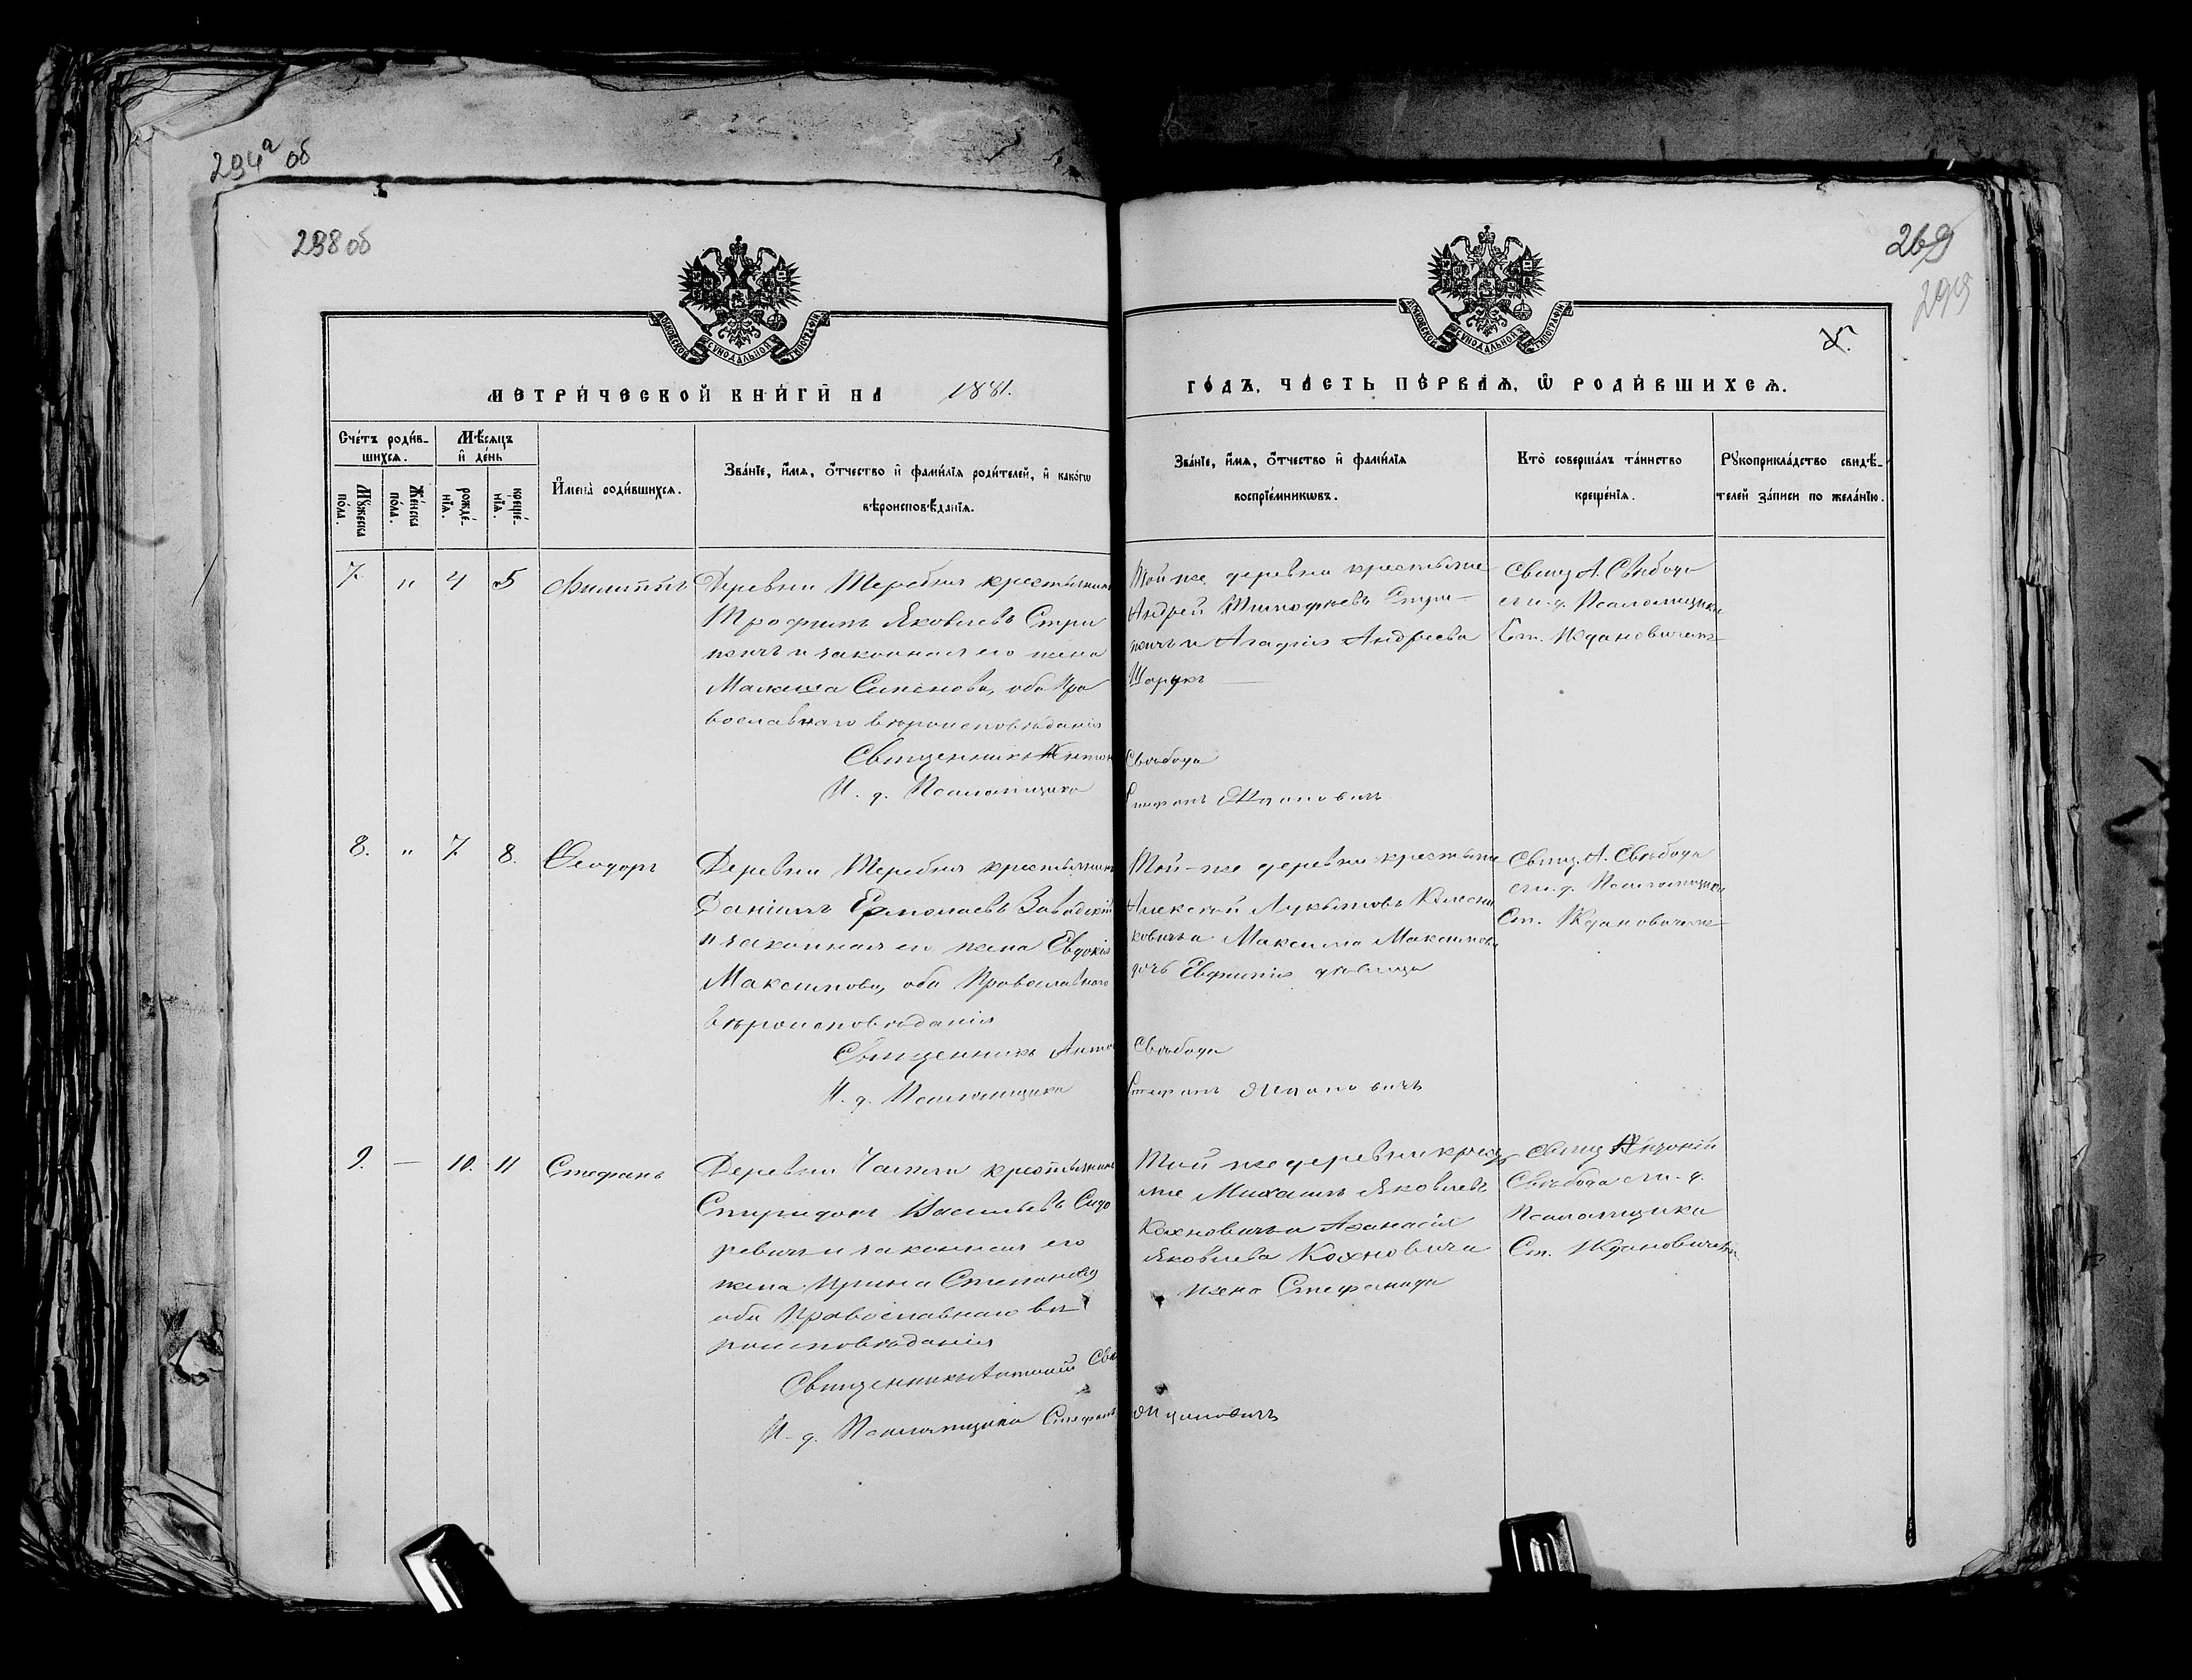 294а об
298 об
269
295
МОСКОВСКОЙ СУНОДАЛЬНОЙ ТИПОГРАФІИ
МОСКОВСКОЙ СУНОДАЛЬНОЙ ТИПОГРАФІИ
МЕТРИ́ЧЕСКОЙ КНИ́ГИ НА 1881.
ГО́ДЪ, ЧА́СТЬ ПЕ́РВАЯ, Ѡ РОДИ́ВШИХСЯ.
Сче́тъ роди́в-
шихся.
Мѣ́сяцъ
и де́нь
Му́жеска
по́ла.
Же́нска
по́ла.
рожде́-
нія.
креще́-
нія.
Имена̀ роди́вшихся.
Зва́ніе, и́мя, о́тчество и фами́лія роди́телей, и како́гѡ
вѣроисповѣ́данія.
Зва́ніе, и́мя, о́тчество и фами́лія
воспріе́мникѡвъ.
Кто̀ соверша́лъ та́инство
креще́нія.
Рꙋкоприкла́дство свидѣ́-
телей за́писи по жела́нію.
7. " 4 5 Филиппъ
Деревни Теребня крестьянинъ
Трофимъ Яковлевъ Стри
жичъ и законная его жена
Малаша Сименова, оба Пра
вославнаго вѣроисповѣданія
Священникъ Антон
И. д. Псаломщика
Той-же деревни крестьяне
Андрей Тимофѣевъ Стри-
жичъ и Агафія Андреева
Шарукъ
Свѣбода
Стефанъ Ждановичъ
Свящ. А. Свѣбода
съ и. д. Псаломщика
Ст. Ждановичемъ
8. " 7 8. Ѳеодоръ
Деревни Теребня крестьянинъ
Даніилъ Ермолаевъ Завадскій
и законная его жена Евдокія
Максимова, оба Православнаго
вѣроисповѣданія
Священникъ Анто
И. д. Псаломщика
Той-же деревни крестьяне
Алексѣй Лукьяновъ
Максима Максимова
дочь Евфимія дѣвица
Свѣбода
Стефанъ Ждановичъ
Свящ. А. Свѣбода
съ и. д. Псаломщика
Ст. Ждановичемъ
9. — 10. 11 Стефанъ
Деревни крестьянинъ
Спиридонъ Васильевъ Сидо
ревичъ и законная его
жена Ирина Степанова
оба Православнаго вѣ
роисповѣданія
Священникъ Антоній Свѣ
И. д. Псаломщика Стефанъ
Той же деревни кресть
яне Михаилъ Яковлевъ
Кахновичъ и Афанасія
Яковлева Кахновича
жена Стефанида
Ждановичъ
Свящ. Антоній
Свѣбода съ и. д.
Псаломщика
Ст. Ждановичемъ